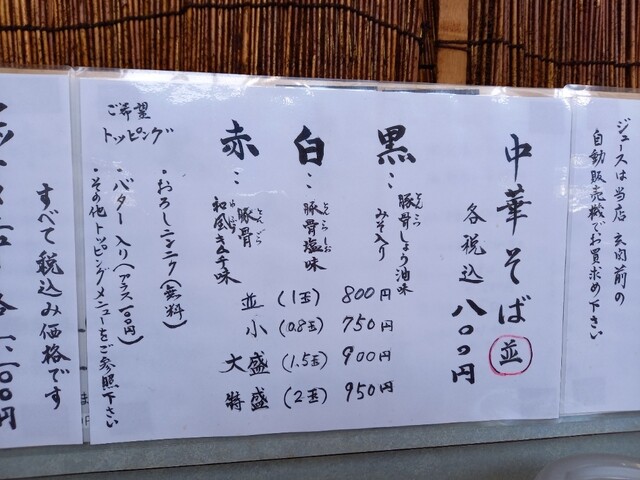 ジュースは当店 玄関前の
自動販売機でお買求め下さい
中華そば 並
各税込 八〇〇円
黒…豚骨しょう油味
とんこつ
みそ入り
白…豚骨塩味
赤…豚骨
和風キムチ味
並 (1玉) 800円
小 (0.8玉) 750円
大盛 (1.5玉) 900円
特盛 (2玉) 950円
ご希望
トッピング
・おろしニンニク(無料)
・バター入り(プラス100円)
・その他トッピングメニューをご参照下さい
すべて税込み価格です